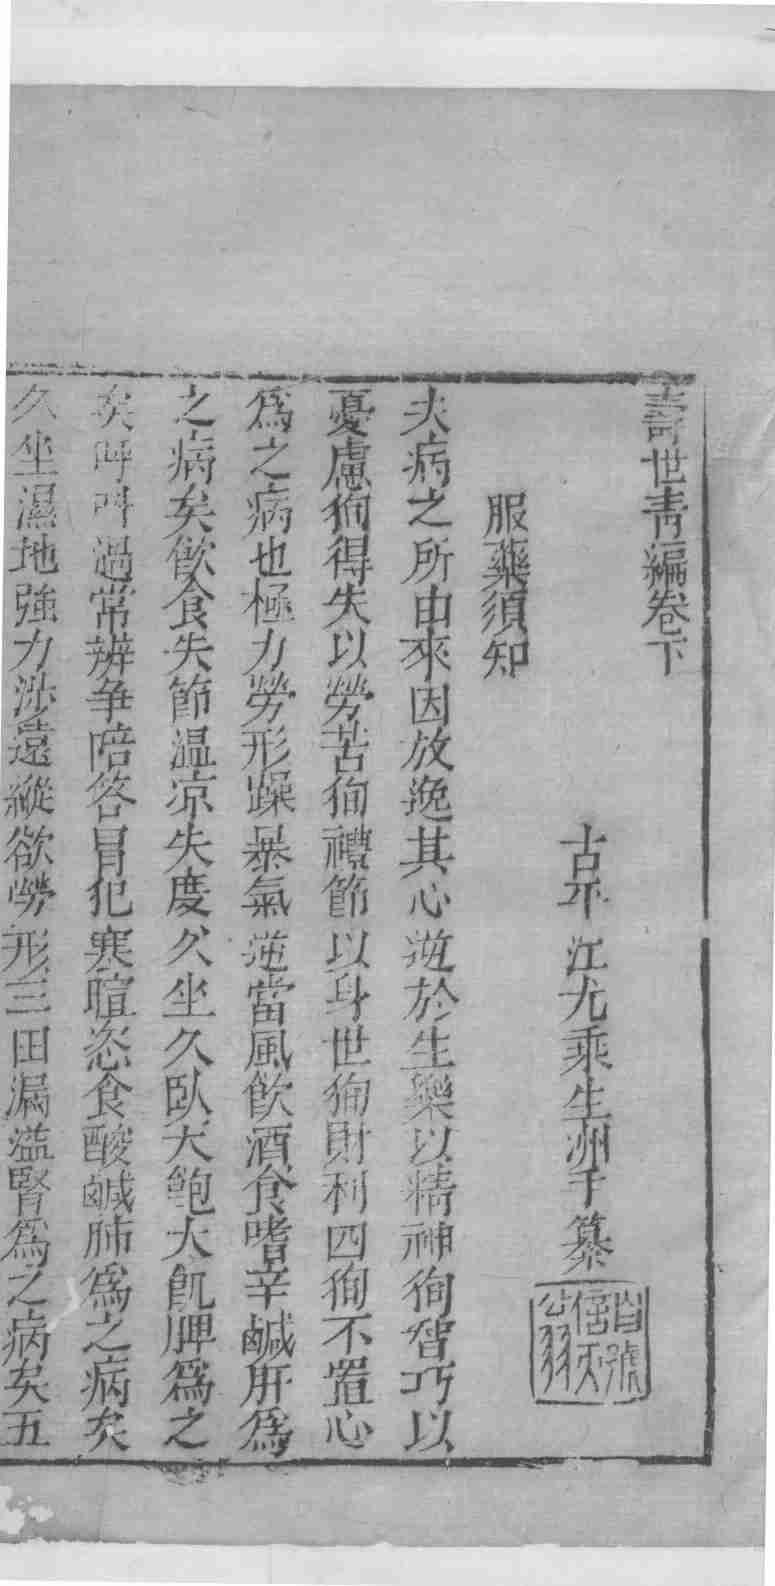 壽世青編卷下
古吳 江尤乘生洲手纂
自號信天翁
服藥須知
夫病之所由來因放逸其心逆於生樂以精神徇智巧以
憂慮徇得失以勞苦徇禮節以身世徇財利四徇不置心
爲之病也極力勞形躁暴氣逆當風飲酒食嗜辛鹹肝爲
之病矣飲食失節溫凉失度久坐久臥大飽大飢脾爲之
病矣呼叫過常辨爭陪答冒犯寒暄恣食酸鹹肺爲之病矣
久坐濕地強力涉遠縱欲勞形三田漏溢腎爲之病矣五